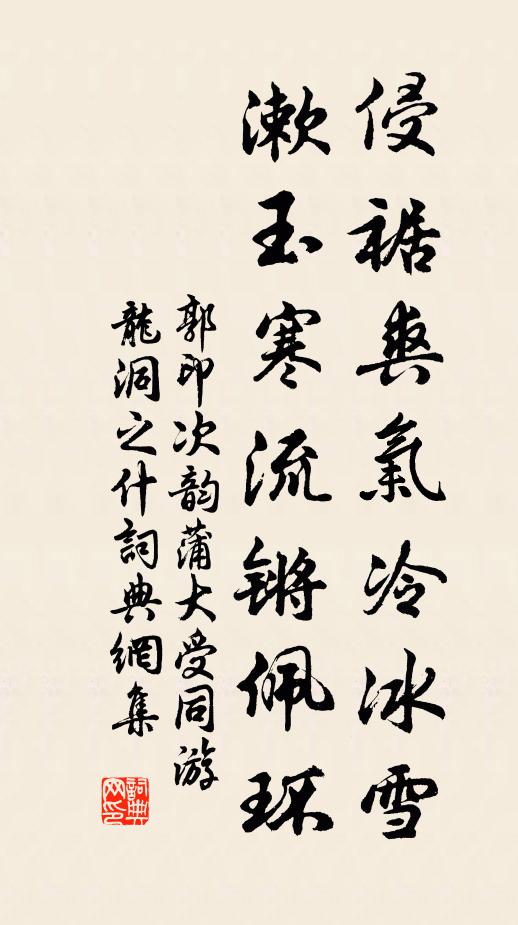 侵裾爽氣冷冰雪
漱玉寒流锵佩环
郭印次韵蒲大受同游
龍洞之什詞典網集
詞典网印